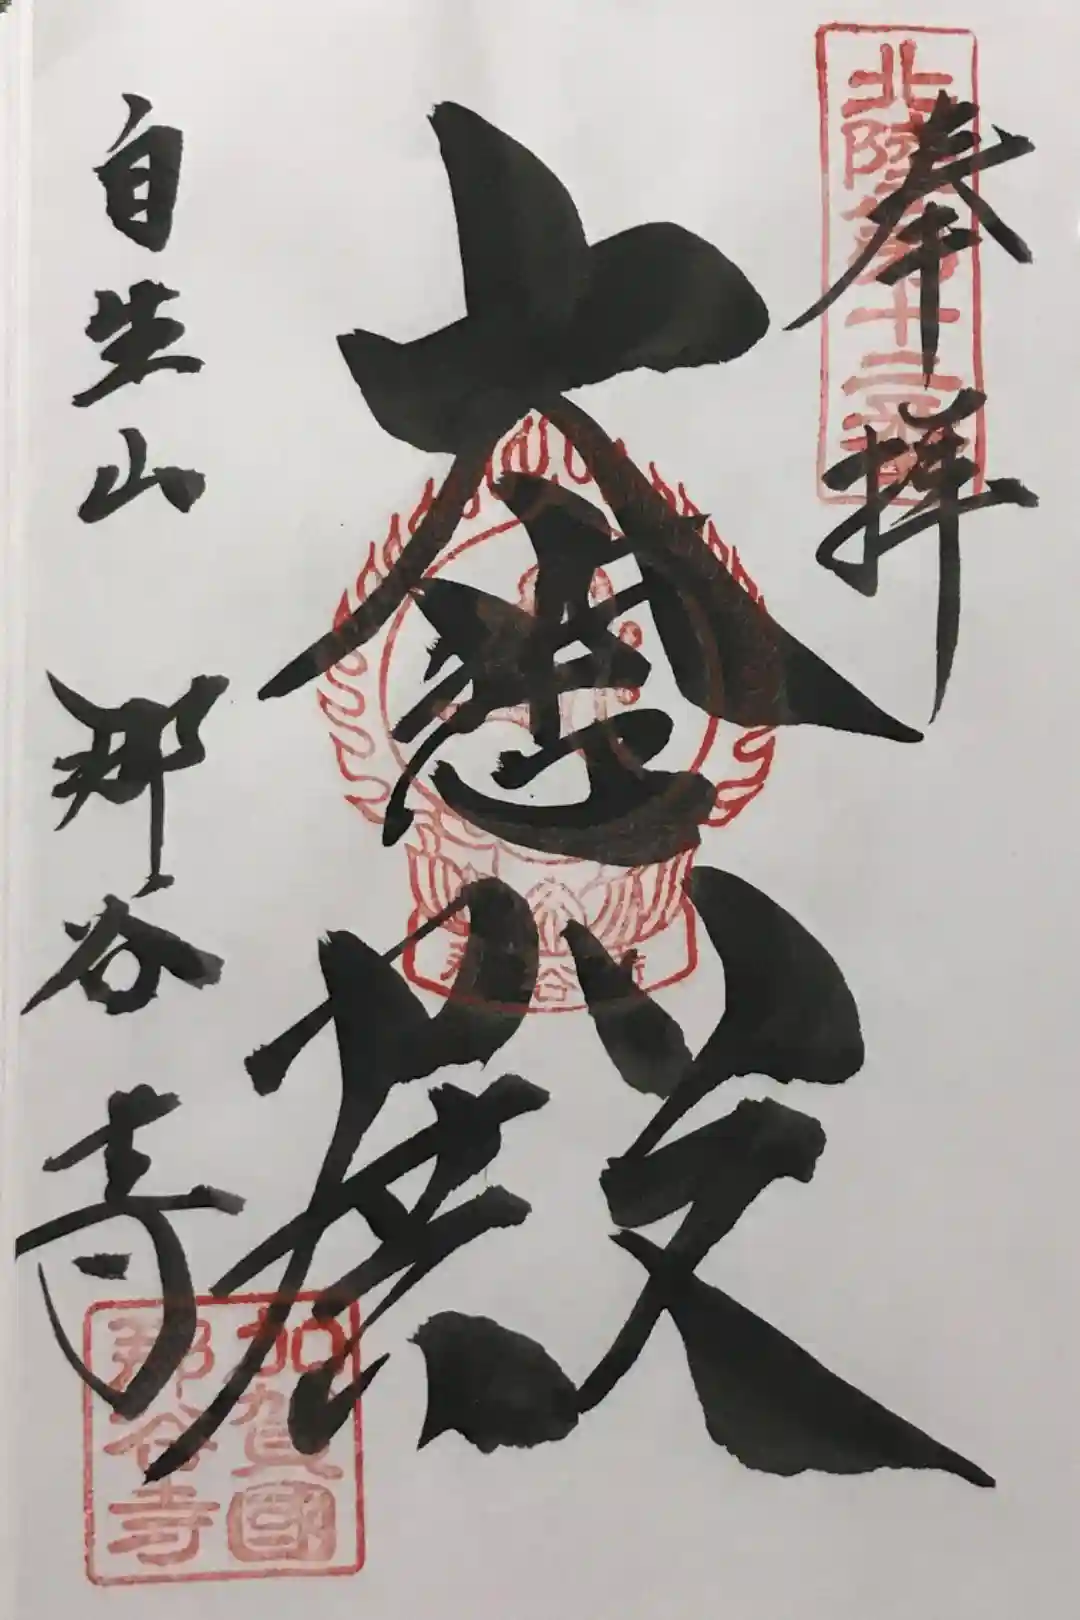 奉拝
北陸第十二番
大悲殿
自生山 那谷寺
那谷寺
加賀國
那谷寺